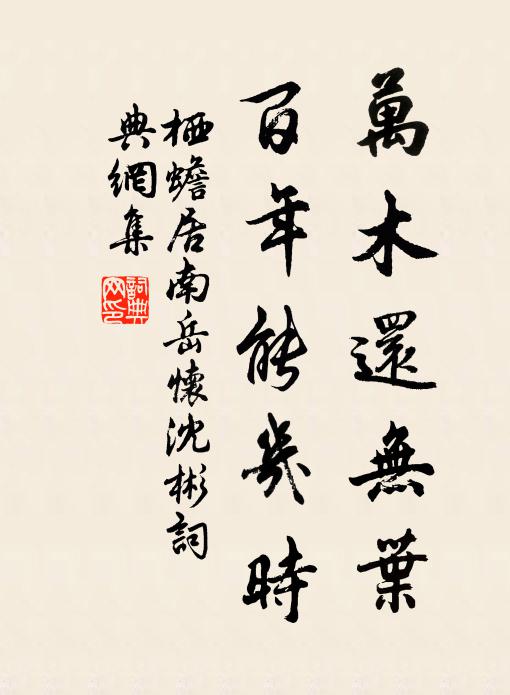 萬木還無葉
百年能幾時
栖蟾居南岳懷沈彬詞
典網集
詞典網印